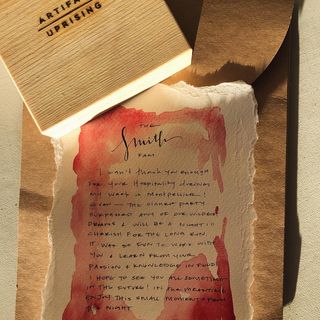 ARTIFACT
UPRISING
THE
Smith
FAM
I CAN'T THANK YOU ENOUGH
FOR YOUR HOSPITALITY DURING
MY WEEK IN MONTPELLIER
THE DINNER PARTY
SURPASSED ANY OF OUR WILDEST
DREAMS & WILL BE A NIGHT I
CHERISH FOR THE LONG RUN.
IT WAS SO FUN TO WORK WITH
YOU & LEARN FROM YOUR
PASSION & KNOWLEDGE IN FOOD.
I HOPE TO SEE YOU ALL SOMETIME
IN THE FUTURE! IN THE MEANTIME
ENJOY THIS SMALL MOMENT FROM
THE NIGHT